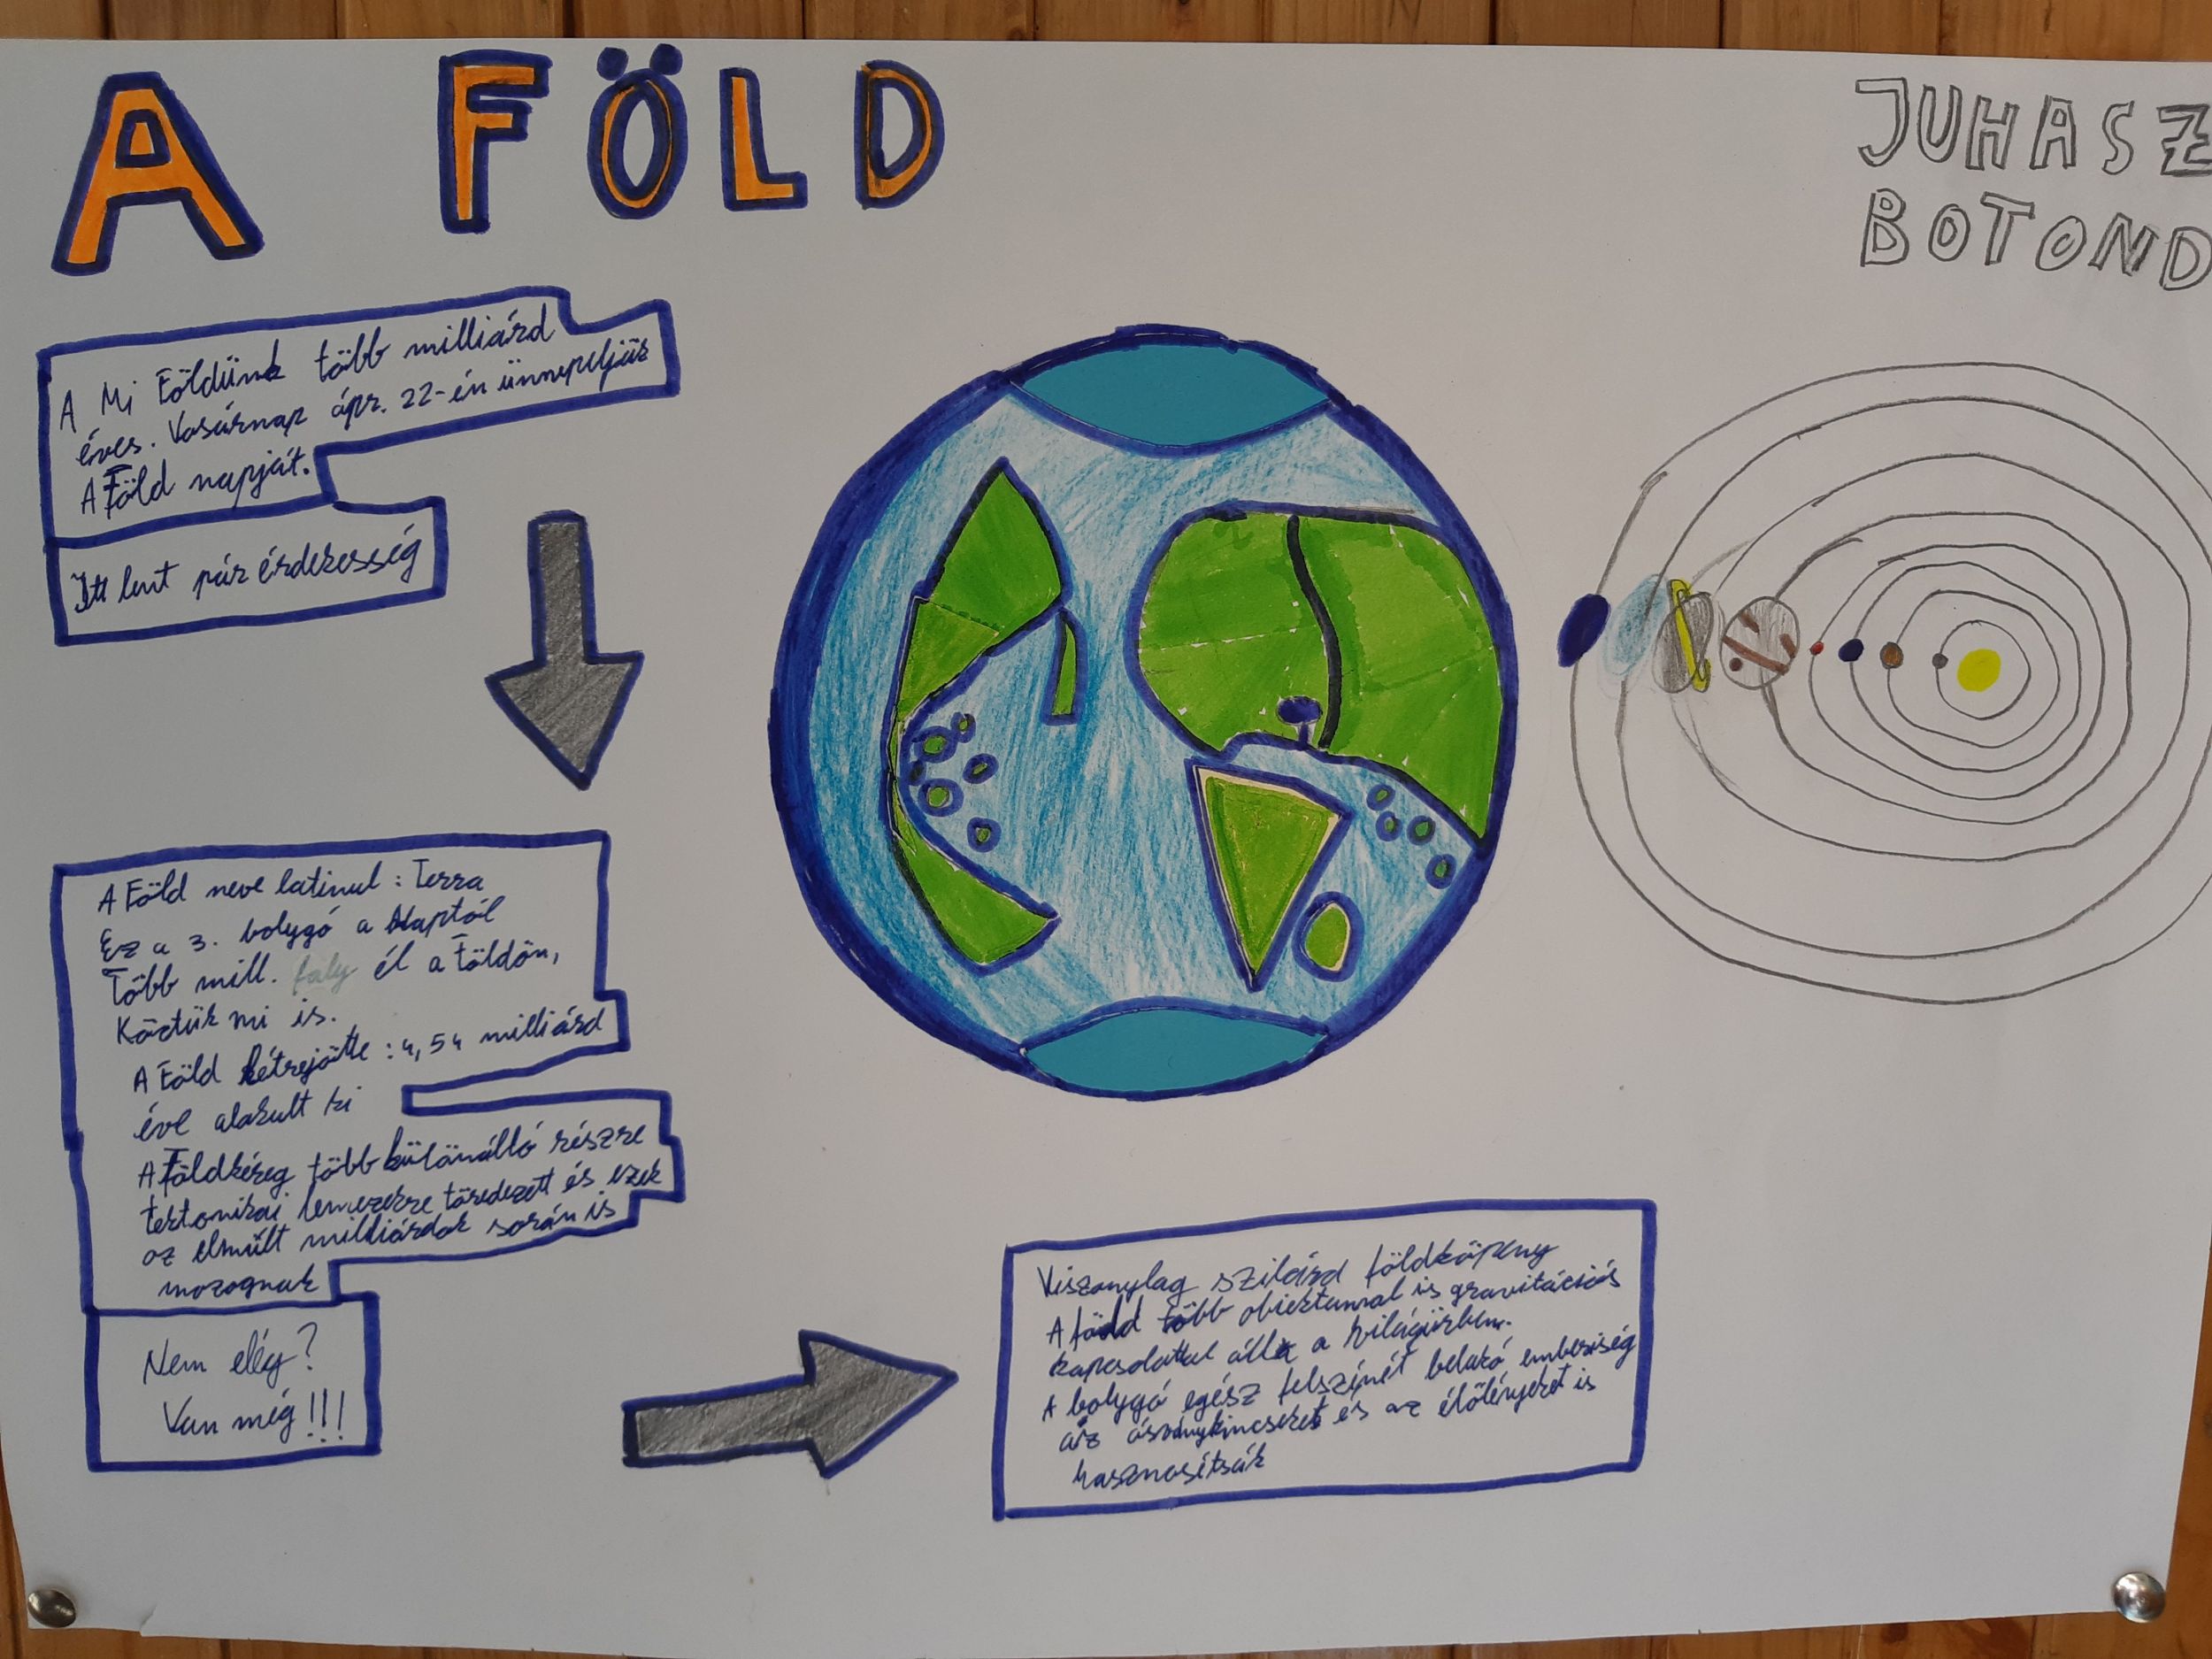 A FÖLD
JUHASZ
BOTOND
A Mi Földünk több milliárd
éves. Vasárnap ápr. 22-én ünnepeljük
A Föld napját.
Itt lent pár érdekesség
A Föld neve latinul: Terra
Ez a 3. bolygó a Naptól
Több mill. faly él a Földön,
Köztük mi is.
A Föld létrejötte: 4,54 milliárd
éve alakult ki
A Földkéreg több különálló részre
tektonikai lemezekre töredezett és ezek
az elmúlt milliárdok során is
mozognak
Nem elég?
Van még!!!
Viszonylag szilárd földköpeny
A föld több objektummal is gravitációs
kapcsolattal áll a világűrben.
A bolygó egész felszínét belakó emberiség
az ásványkincseket és az élőlényeket is
hasznosítsák